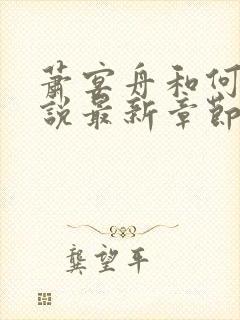 萧宴舟和何
說最新章節
龔望平